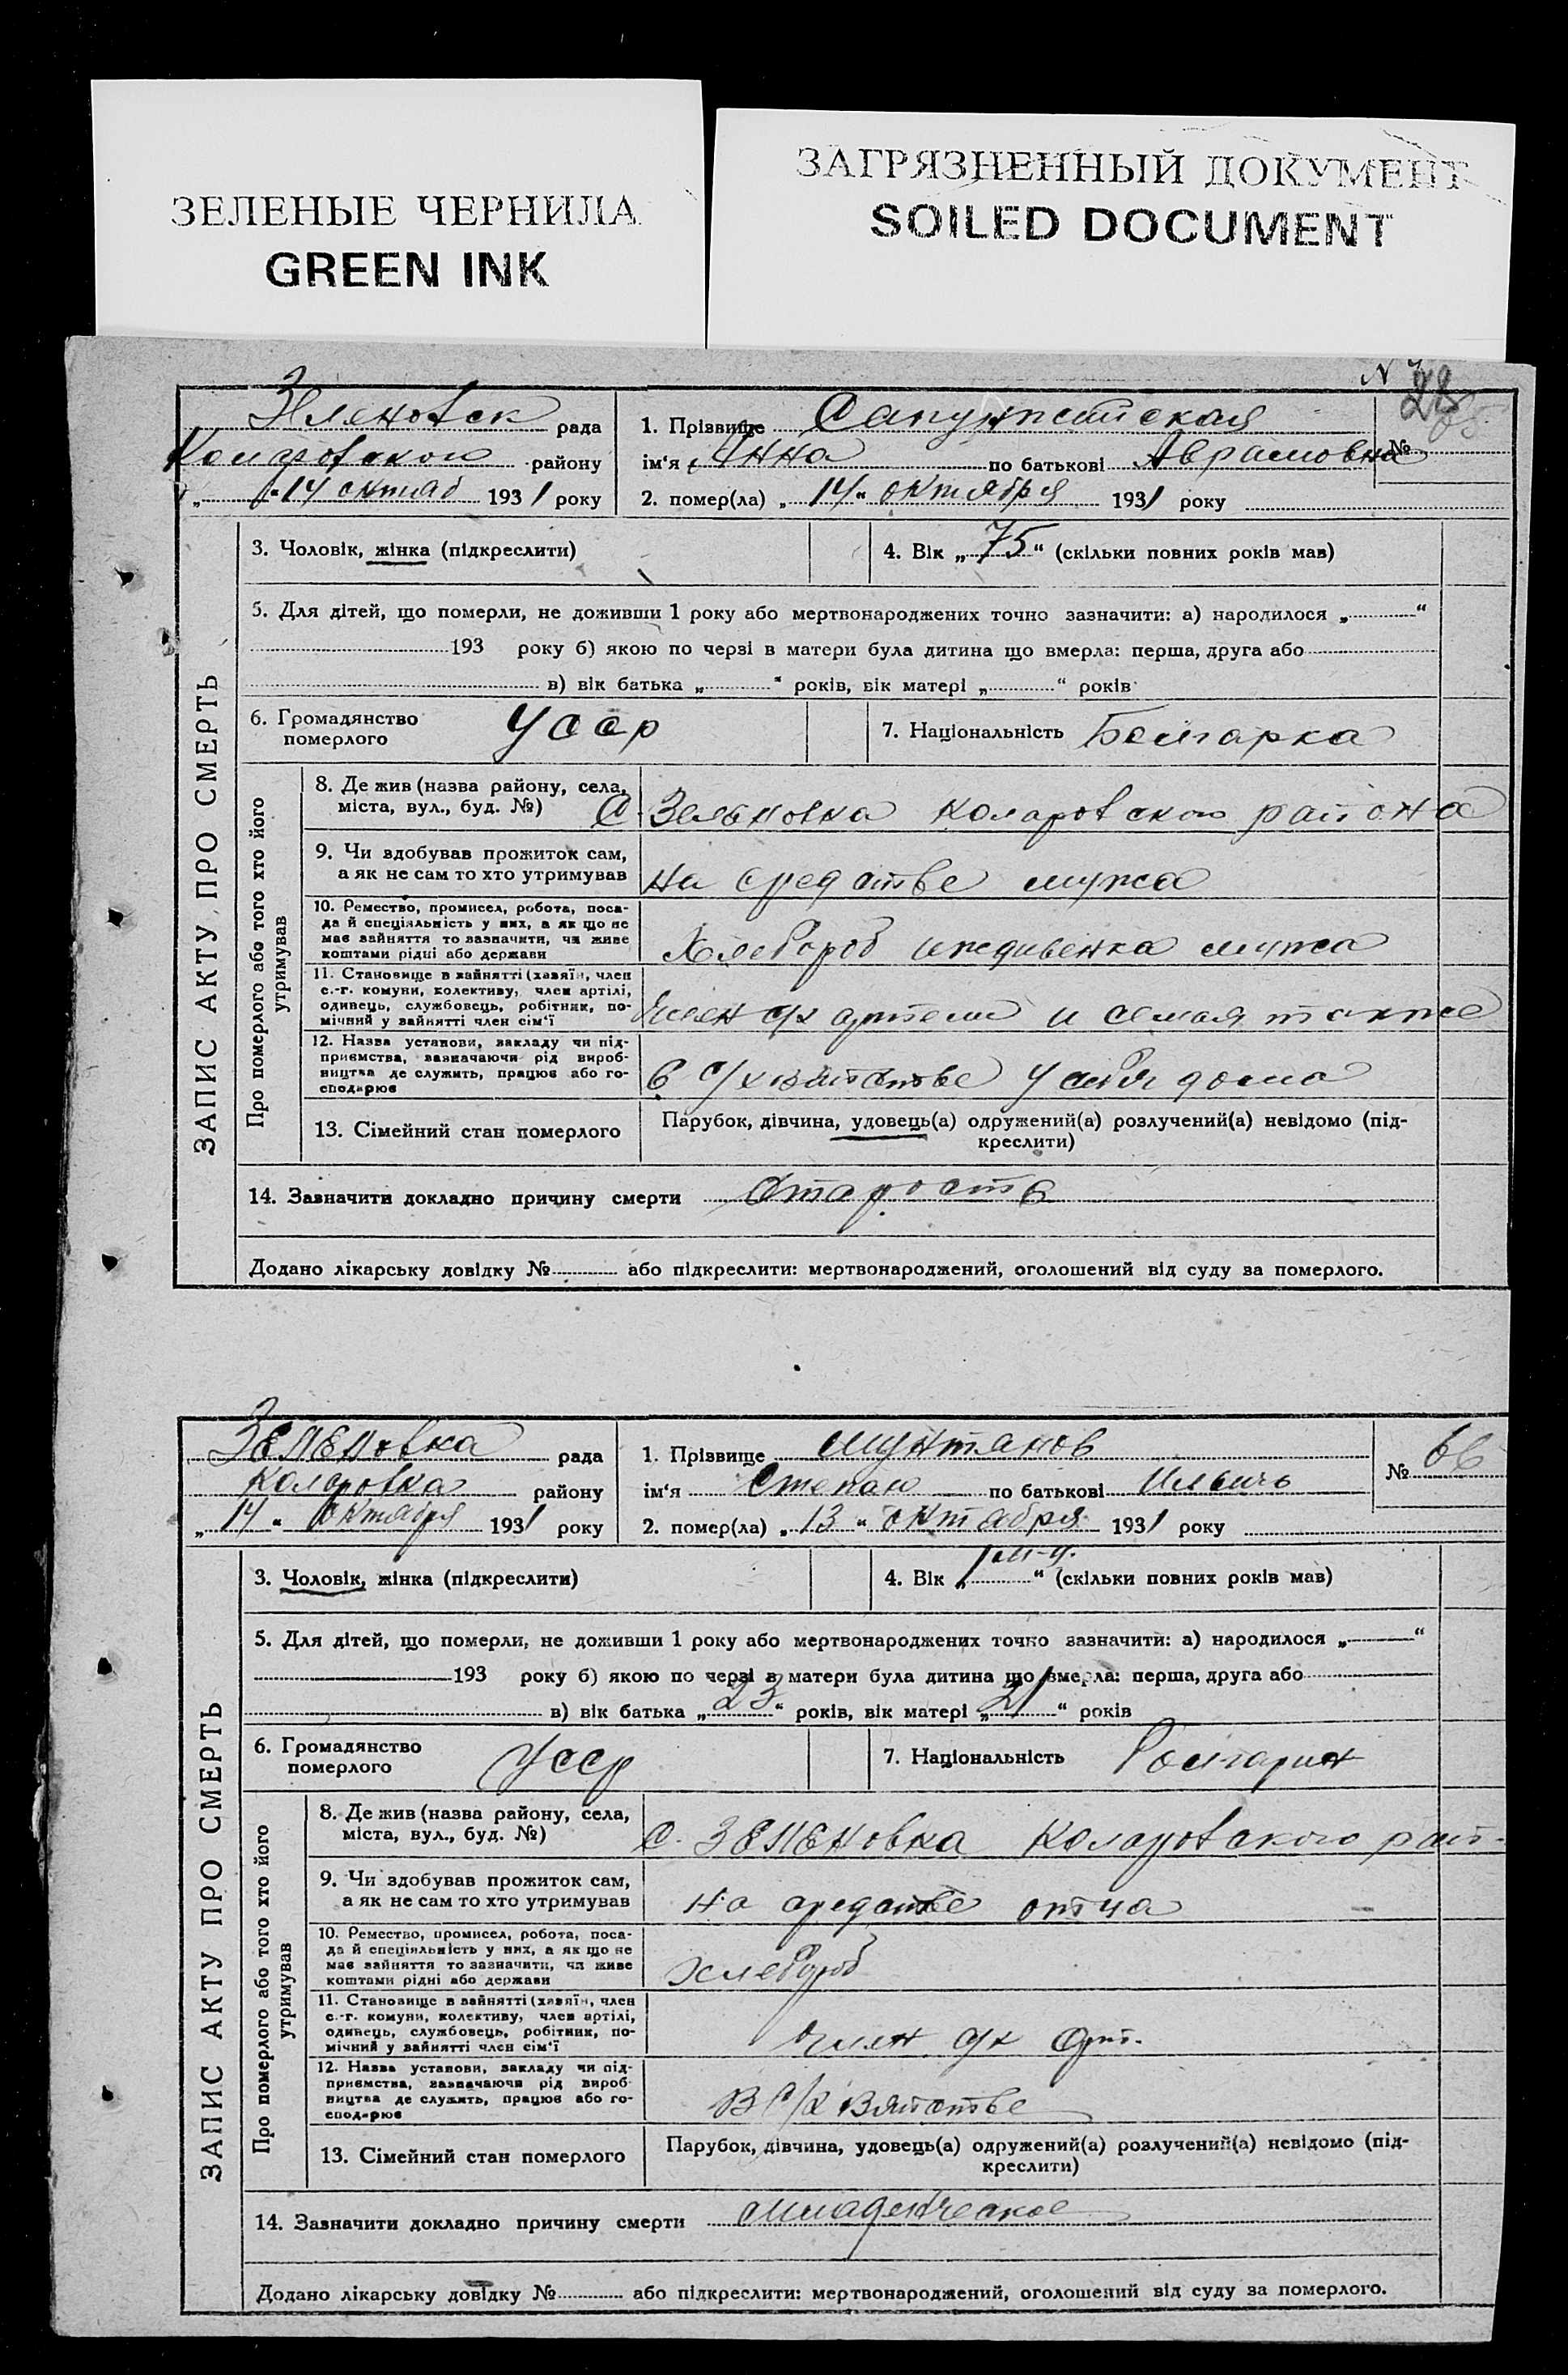 ЗЕЛЕНЫЕ ЧЕРНИЛА
GREEN INK
ЗАГРЯЗНЕННЫЙ ДОКУМЕНТ
SOILED DOCUMENT
28
рада
району
„ 14 октяб 1931 року
1. Прізвище
ім'я Анна по батькові Аврамовна
№
2. помер(ла) „ 14 “ октября 1931 року
ЗАПИС АКТУ ПРО СМЕРТЬ
3. Чоловік, жінка (підкреслити)
4. Вік „ 75 “ (скільки повних років мав)
5. Для дітей, що померли, не доживши 1 року або мертвонароджених точно зазначити: а) народилося „ “
193 року б) якою по черзі в матери була дитина що вмерла: перша, друга або
в) вік батька „ “ років, вік матері „ “ років
6. Громадянство
померлого
Усср
7. Національність Болгарка
Про померлого або того хто його
утримував
8. Де жив (назва району, села,
міста, вул., буд. №)
С. Зеленовка Коларовского района
9. Чи здобував прожиток сам,
а як не сам то хто утримував
на средстве мужа
10. Ремество, промисел, робота, поса-
да й спеціяльність у них, а як що не
має зайняття то зазначити, чи живе
коштами рідні або держави
Хлебороб иждивенка мужа
11. Становище в зайнятті (хазяїн, член
с.-г. комуни, колективу, член артілі,
одинець, службовець, робітник, по-
мічний у зайнятті член сім'ї
член с/х артели и семья также
12. Назва установи, закладу чи під-
приємства, зазначаючи рід вироб-
ництва де служить, працює або го-
сподарює
в с/х у себя дома
13. Сімейний стан померлого
Парубок, дівчина, удовець(а) одружений(а) розлучений(а) невідомо (під-
креслити)
14. Зазначити докладно причину смерти Старость
Додано лікарську довідку № або підкреслити: мертвонароджений, оголошений від суду за померлого.
Зеленовка рада
Коларовка району
„ 14 “ Октября 1931 року
1. Прізвище Мунтянов
ім'я Степан по батькові Ильичь
№ 66
2. помер(ла) „ 13 “ октября 1931 року
ЗАПИС АКТУ ПРО СМЕРТЬ
3. Чоловік, жінка (підкреслити)
4. Вік „ 1 м-ц. “ (скільки повних років мав)
5. Для дітей, що померли, не доживши 1 року або мертвонароджених точно зазначити: а) народилося „ “
193 року б) якою по черзі в матери була дитина що вмерла: перша, друга або
в) вік батька „ 23 “ років, вік матері „ 21 “ років
6. Громадянство
померлого
Усср
7. Національність Болгарин
Про померлого або того хто його
утримував
8. Де жив (назва району, села,
міста, вул., буд. №)
С. Зеленовка Коларовского рай-
9. Чи здобував прожиток сам,
а як не сам то хто утримував
на средстве отца
10. Ремество, промисел, робота, поса-
да й спеціяльність у них, а як що не
має зайняття то зазначити, чи живе
коштами рідні або держави
Хлебороб
11. Становище в зайнятті (хазяїн, член
с.-г. комуни, колективу, член артілі,
одинець, службовець, робітник, по-
мічний у зайнятті член сім'ї
член с/х Арт.
12. Назва установи, закладу чи під-
приємства, зазначаючи рід вироб-
ництва де служить, працює або го-
сподарює
в с/х
13. Сімейний стан померлого
Парубок, дівчина, удовець(а) одружений(а) розлучений(а) невідомо (під-
креслити)
14. Зазначити докладно причину смерти Младенческое
Додано лікарську довідку № або підкреслити: мертвонароджений, оголошений від суду за померлого.